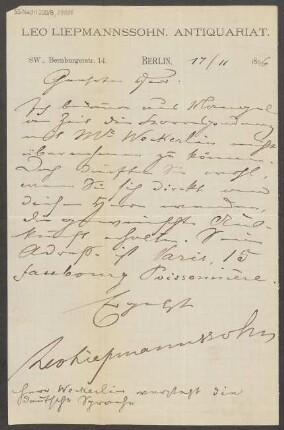 LEO LIEPMANNSSOHN. ANTIQUARIAT.
SW., Bernburgerstr. 14. BERLIN, 17/11 1896
Geehrter Herr.
Ich bedaure aus Mangel
an Zeit die Correspondenz
mit Mr Weckerlin nicht
übernehmen zu können.
Doch dürften Sie wohl,
wenn Sie sich direkt an
Herrn wenden,
die gewünschte Aus-
kunft erhalten. Seine
Adresse ist Paris, 15
faubourg Poissonnière.
Ergebst
Leo Liepmannssohn
Herr Weckerlin versteht die
deutsche Sprache